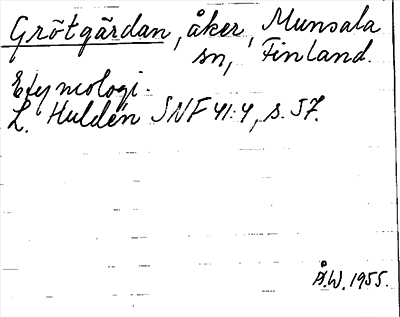 Grötgärdan, åker, Munsala
sn, Finland.
Etymologi.
L. Huldén SNF 41:4, s. 57.
Å.W. 1955.